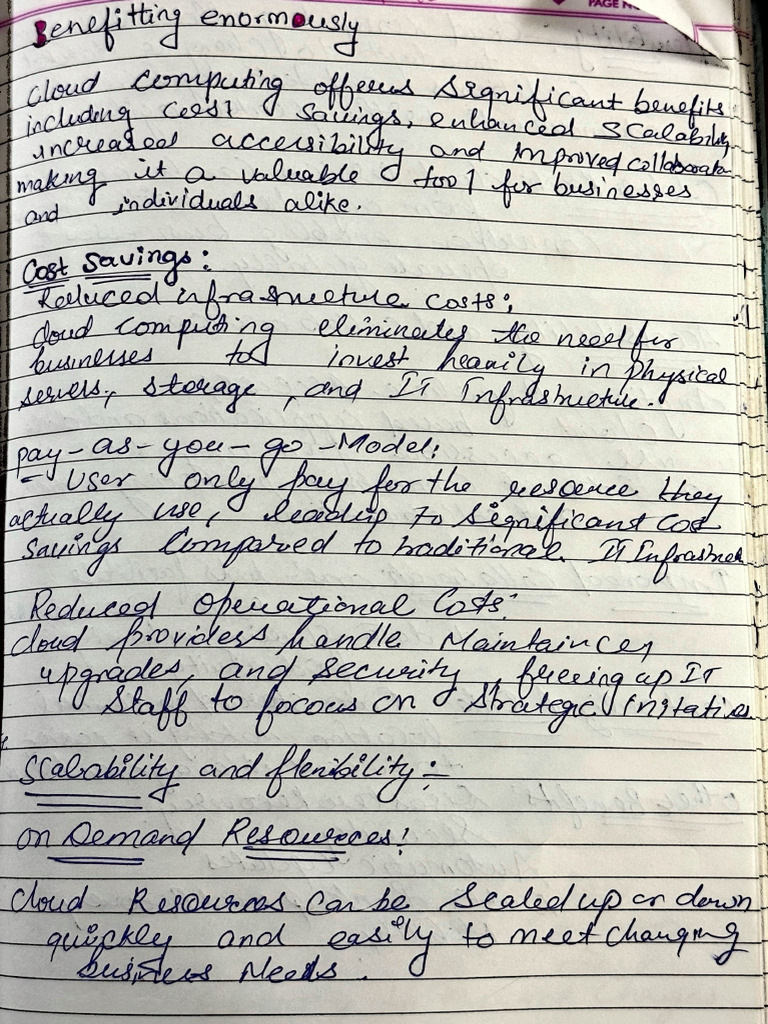 PAGE N
Benefitting enormously
Cloud computing offerers significant benefits
including cost savings, enhanced scalability
increased accessibility and improved collaboratn
making it a valuable tool for businesses
and individuals alike.
Cost Savings:
Reduced infrastructure costs:
cloud computing eliminates the need for
businesses to invest heavily in physical
servers, storage, and IT Infrastructure.
pay-as-you-go-Model:
- User only pay for the resource they
actually use, leading to significant cost
savings compared to traditional IT Infrastruct
Reduced Operational Costs:
cloud providers handle Maintaince,
upgrades, and security, freeing up IT
Staff to focous on Strategic initaties.
Scalability and flexibility:-
on Demand Resources!
Cloud Resources can be Scaled up or down
quickly and easily to meet changing
business Needs.